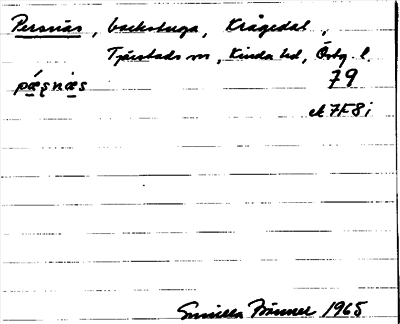 Persnäs, backstuga, Krågedal,
Tjärstads sn, Kinda hd, Östg. l.
pæ̂ʂnæs 79
ek 7F8i
Gunilla Brönner 1965